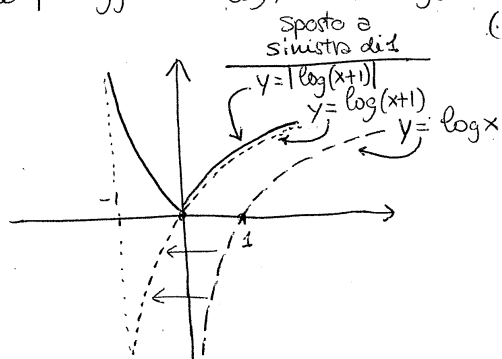 sposto a
sinistra di 1
y = |log(x+1)|
y = log(x+1)
y = logx
-1
1